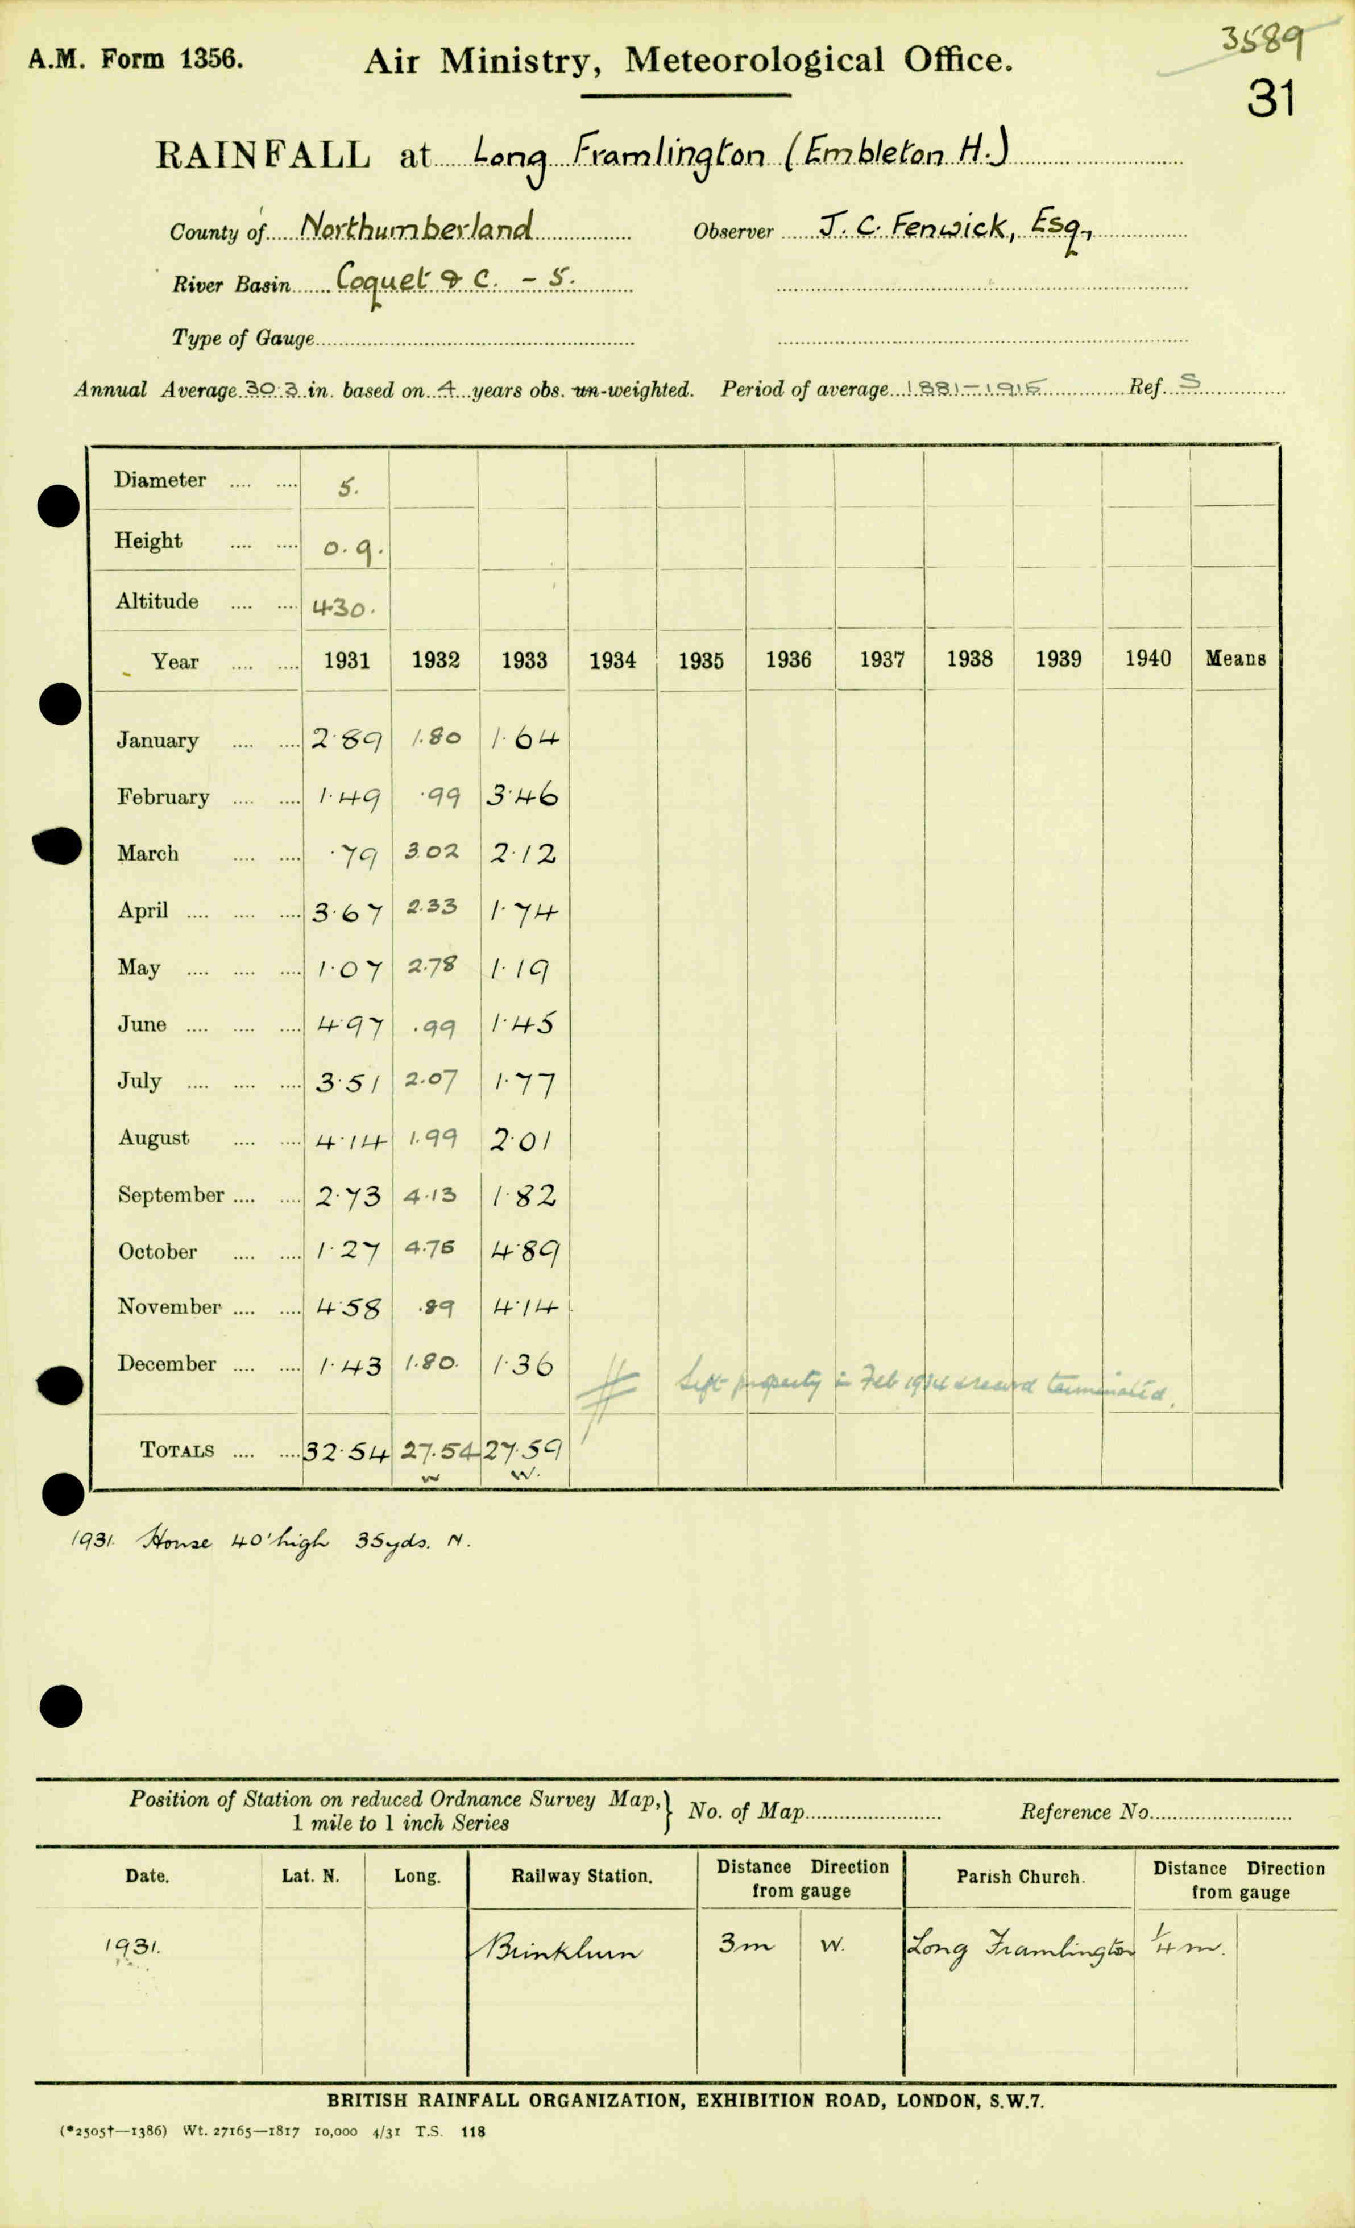 3589
A.M. Form 1356. Air Ministry, Meteorological Office.
31
RAINFALL at Long Framlington (Embleton H.)
County of Northumberland Observer J. C. Fenwick, Esq.,
River Basin Coquet & C. - 5.
Type of Gauge
Annual Average 30.3 in. based on 4 years obs. un-weighted. Period of average 1881-1915 Ref. S
Diameter 5.
Height 0.9.
Altitude 430.
Year 1931 1932 1933 1934 1935 1936 1937 1938 1939 1940 Means
January 2.89 1.80 1.64
February 1.49 .99 3.46
March .79 3.02 2.12
April 3.67 2.33 1.74
May 1.07 2.78 1.19
June 4.97 .99 1.45
July 3.51 2.07 1.77
August 4.14 1.99 2.01
September 2.73 4.13 1.82
October 1.27 4.75 4.89
November 4.58 .89 4.14
December 1.43 1.80. 1.36
Left property in Feb 1934 & record terminated.
TOTALS 32.54 27.54 27.59
w w.
1931. House 40' high 35yds. N.
Position of Station on reduced Ordnance Survey Map, } No. of Map Reference No.
1 mile to 1 inch Series
Date. Lat. N. Long. Railway Station. Distance Direction Parish Church. Distance Direction
from gauge from gauge
1931. Brinkburn 3m W. Long Framlington 1/4 m.
BRITISH RAINFALL ORGANIZATION, EXHIBITION ROAD, LONDON, S.W.7.
(*2505†—1386) Wt. 27165—1817 10,000 4/31 T.S. 118